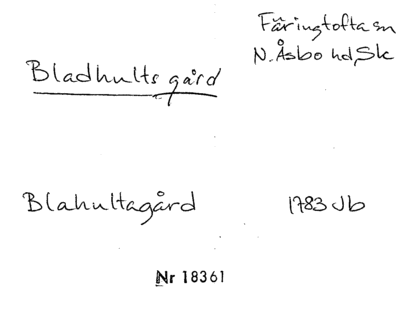 Färingtofta sn
N. Åsbo hd, Sk
Bladhults gård
Blahultagård 1783 Jb
Nr 18361